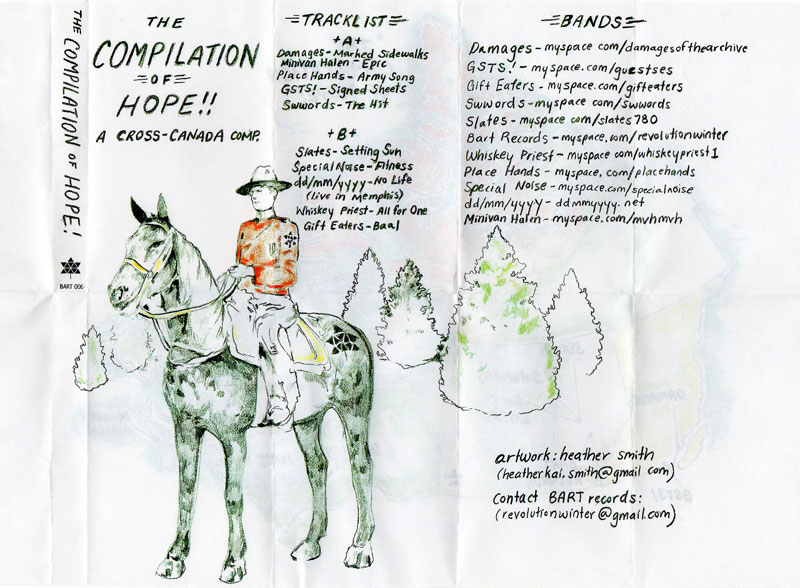 THE COMPILATION OF HOPE!
BART 006
THE
COMPILATION
OF
HOPE!!
A CROSS-CANADA COMP.
TRACKLIST
+A+
Damages - Marked Sidewalks
Minivan Halen - Epic
Place Hands - Army Song
GSTS! - Signed Sheets
Swwords - The Hit
+B+
Slates - Setting Sun
Special Noise - Fitness
dd/mm/yyyy - No Life
(live in Memphis)
Whiskey Priest - All for One
Gift Eaters - Baal
BANDS
Damages - myspace.com/damagesofthearchive
GSTS! - myspace.com/guestses
Gift Eaters - myspace.com/gifteaters
Swwords - myspace.com/swwords
Slates - myspace.com/slates780
Bart Records - myspace.com/revolutionwinter
Whiskey Priest - myspace.com/whiskeypriest1
Place Hands - myspace.com/placehands
Special Noise - myspace.com/specialnoise
dd/mm/yyyy - ddmmyyyy.net
Minivan Halen - myspace.com/mvhmvh
artwork: heather smith
(heatherkai.smith@gmail.com)
Contact BART records:
(revolutionwinter@gmail.com)